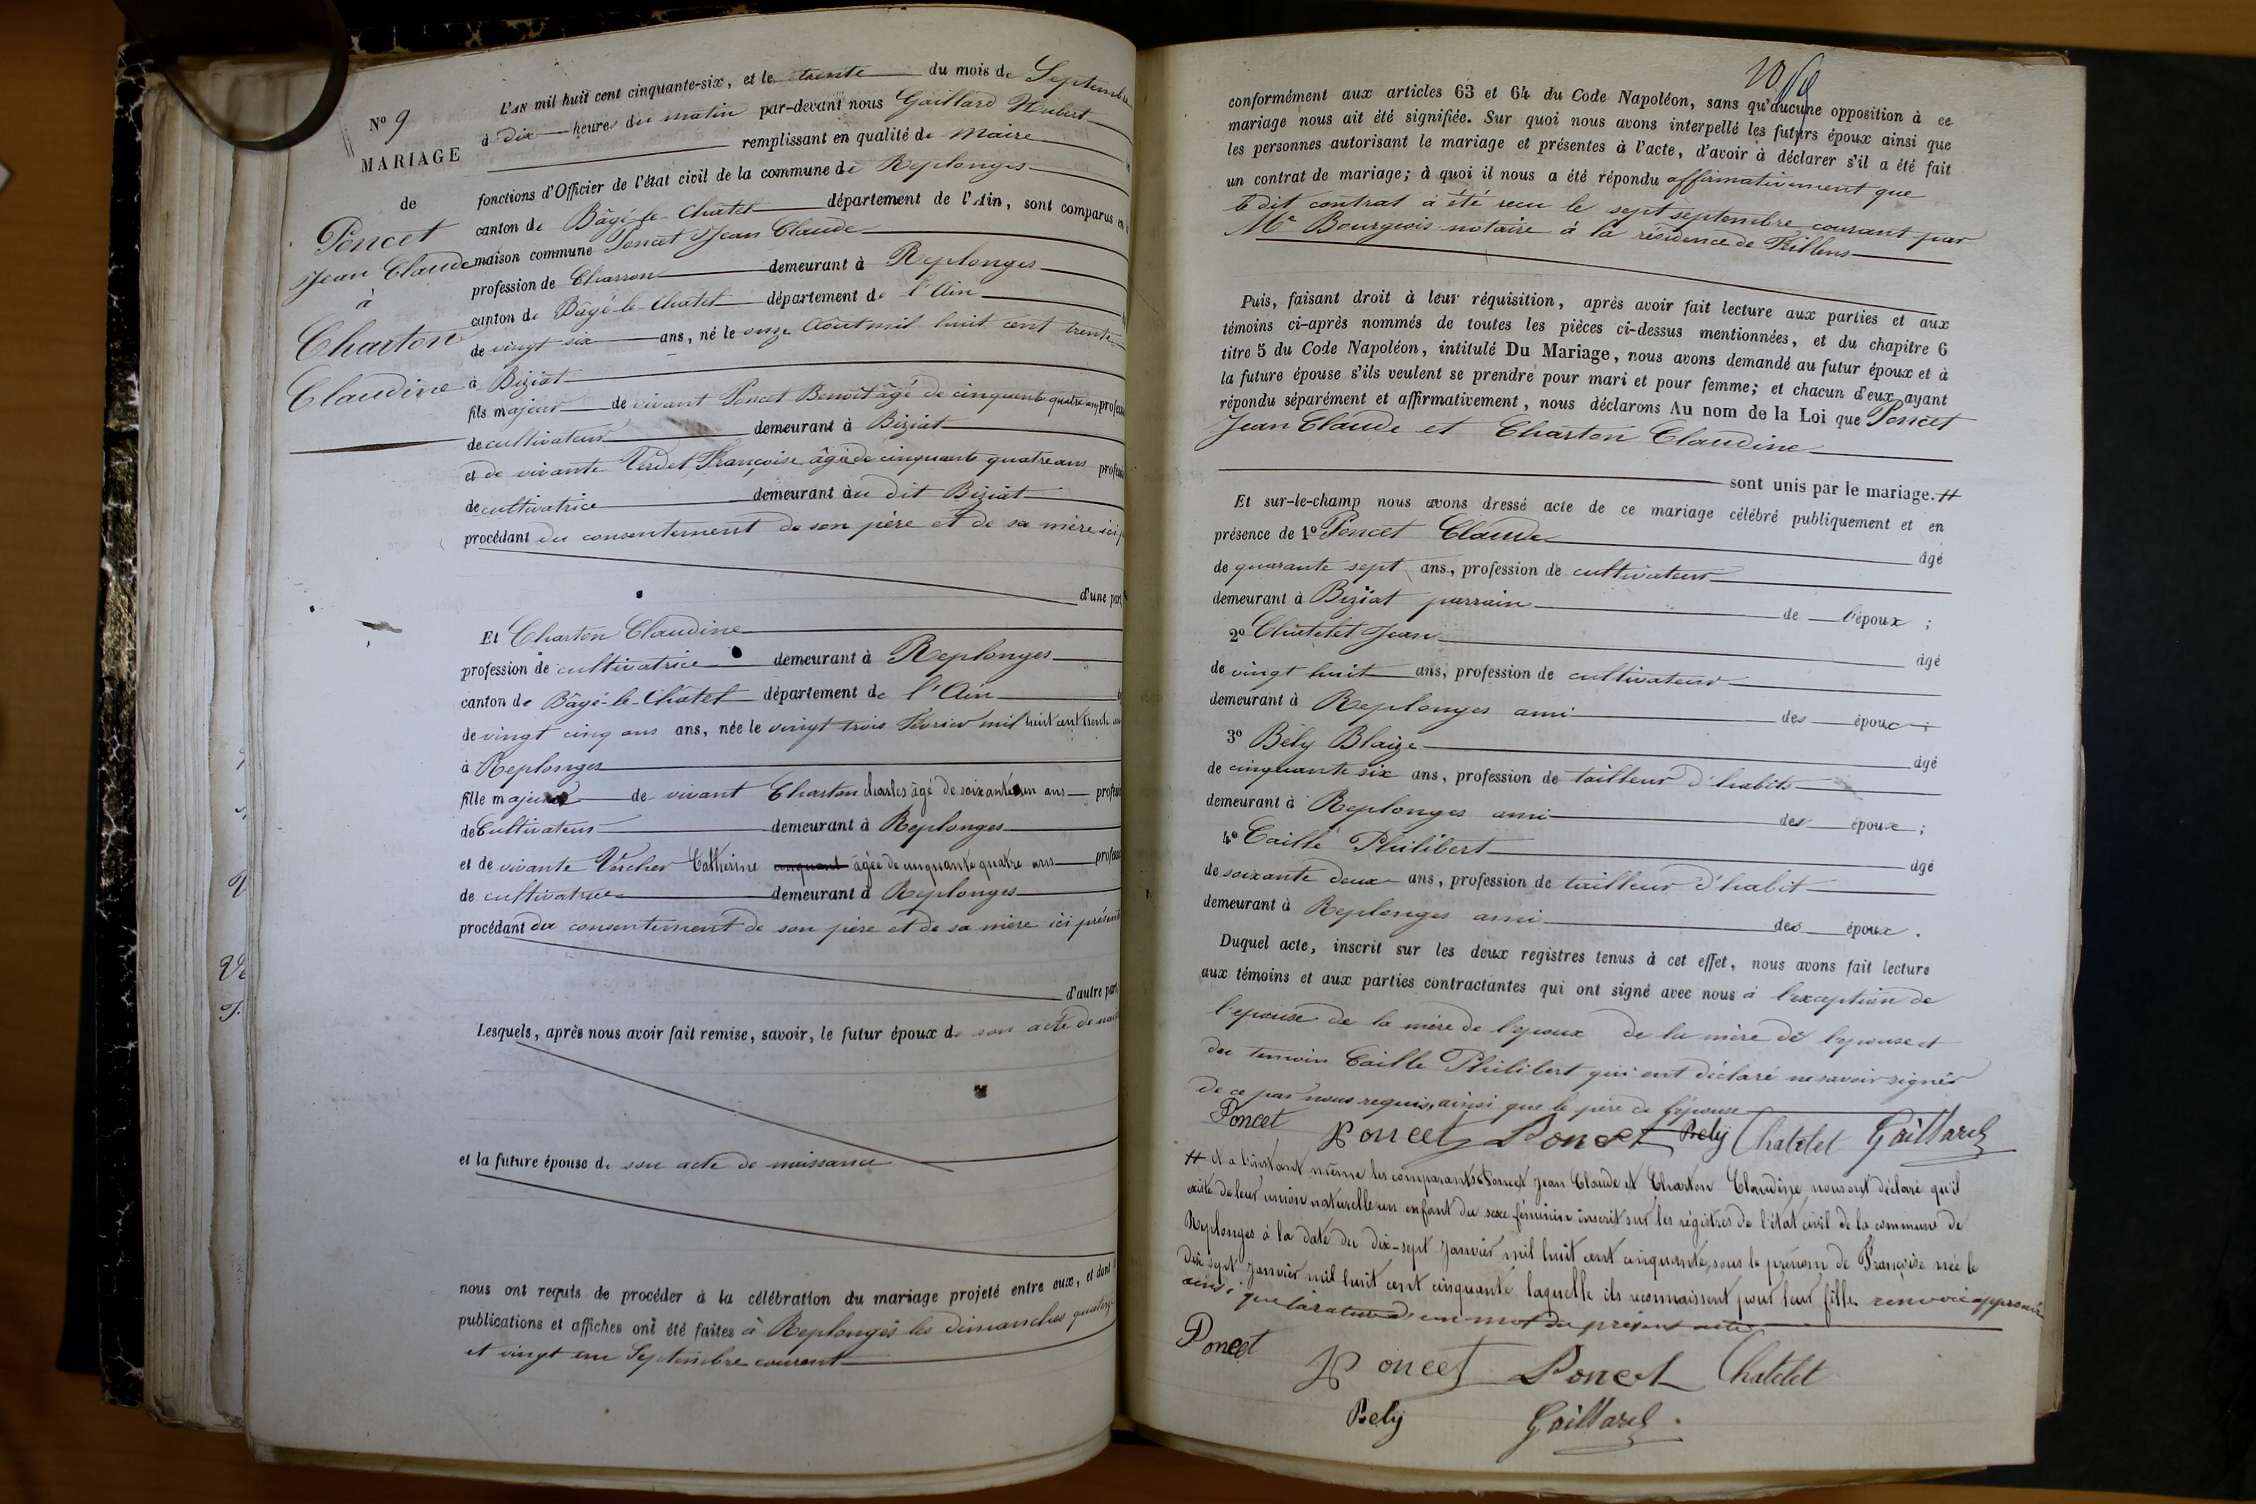 N° 9
MARIAGE
de
Poncet
Jean Claude
à
Charton
Claudine
L'AN mil huit cent cinquante-six, et le trente du mois de Septembre
à dix heures du matin par-devant nous Gaillard Hubert
remplissant en qualité de maire
fonctions d'Officier de l'état civil de la commune de Replonges
canton de Bâgé-le-Chatel département de l'Ain, sont comparus en
maison commune Poncet Jean Claude
profession de Charron demeurant à Replonges
canton de Bâgé-le-Chatel département de l'Ain
de vingt six ans, né le onze Août mil huit cent trente
à Biziat
fils majeur de vivant Poncet Benoit âgé de cinquante quatre ans profess
de cultivateur demeurant à Biziat
et de vivante Verdet Françoise âgée de cinquante quatre ans profess
de cultivatrice demeurant au dit Biziat
procédant du consentement de son père et de sa mère ici
d'une part
Et Charton Claudine
profession de cultivatrice demeurant à Replonges
canton de Bâgé-le-Châtel département de l'Ain
de vingt cinq ans ans, née le vingt trois Fevrier mil huit cent trente
à Replonges
fille majeure de vivant Charton Charles âgé de soixante un ans profess
de Cultivateur demeurant à Replonges
et de vivante Vucher Catherine cinquant âgée de cinquante quatre ans profess
de cultivatrice demeurant à Replonges
procédant du consentement de son père et de sa mère ici présents
d'autre part
Lesquels, après nous avoir fait remise, savoir, le futur époux de son acte de nais
et la future épouse de son acte de naissance
nous ont requis de procéder à la célébration du mariage projeté entre eux, et dont
publications et affiches ont été faites à Replonges les dimanches quatorze
et vingt un Septembre courant
conformément aux articles 63 et 64 du Code Napoléon, sans qu'aucune opposition à ce
mariage nous ait été signifiée. Sur quoi nous avons interpellé les futurs époux ainsi que
les personnes autorisant le mariage et présentes à l'acte, d'avoir à déclarer s'il a été fait
un contrat de mariage; à quoi il nous a été répondu affirmativement que
le dit contrat a été recu le sept septembre courant par
Me Bourgeois notaire à la résidence de
Puis, faisant droit à leur réquisition, après avoir fait lecture aux parties et aux
témoins ci-après nommés de toutes les pièces ci-dessus mentionnées, et du chapitre 6
titre 5 du Code Napoléon, intitulé Du Mariage, nous avons demandé au futur époux et à
la future épouse s'ils veulent se prendre pour mari et pour femme; et chacun d'eux ayant
répondu séparément et affirmativement, nous déclarons Au nom de la Loi que Poncet
Jean Claude et Charton Claudine
sont unis par le mariage. #
Et sur-le-champ nous avons dressé acte de ce mariage célébré publiquement et en
présence de 1° Poncet Claude âgé
de quarante sept ans, profession de cultivateur
demeurant à Biziat parrain de l'époux ;
2° Chatelet Jean âgé
de vingt huit ans, profession de cultivateur
demeurant à Replonges ami des époux ;
3° Bély Blaize âgé
de cinquante six ans, profession de tailleur d'habits
demeurant à Replonges ami des époux ;
4° Caille Philibert âgé
de soixante deux ans, profession de tailleur d'habit
demeurant à Replonges ami des époux .
Duquel acte, inscrit sur les deux registres tenus à cet effet, nous avons fait lecture
aux témoins et aux parties contractantes qui ont signé avec nous à l'exception de
l'epouse de la mère de l'époux de la mère de l'epouse et
du temoin Caille Philibert qui ont déclaré ne savoir signer
de ce par nous requis, ainsi que le père de l'épouse
Poncet Poncet Poncet Bely Chatelet Gaillard
# et a l'instant même les comparants Poncet Jean Claude et Charton Claudine nous ont déclaré qu'il
existe de leur union naturelle un enfant du sexe féminin inscrit sur les régistres de l'état civil de la commune de
Replonges à la date du dix-sept Janvier mil huit cent cinquante, sous le prénom de Françoise née le
dix sept Janvier mil huit cent cinquante laquelle ils reconnaissent pour leur fille. renvoi approuvé
ainsi que la rature d'un mot du présent acte
Poncet Poncet Poncet Chatelet
Bely Gaillard